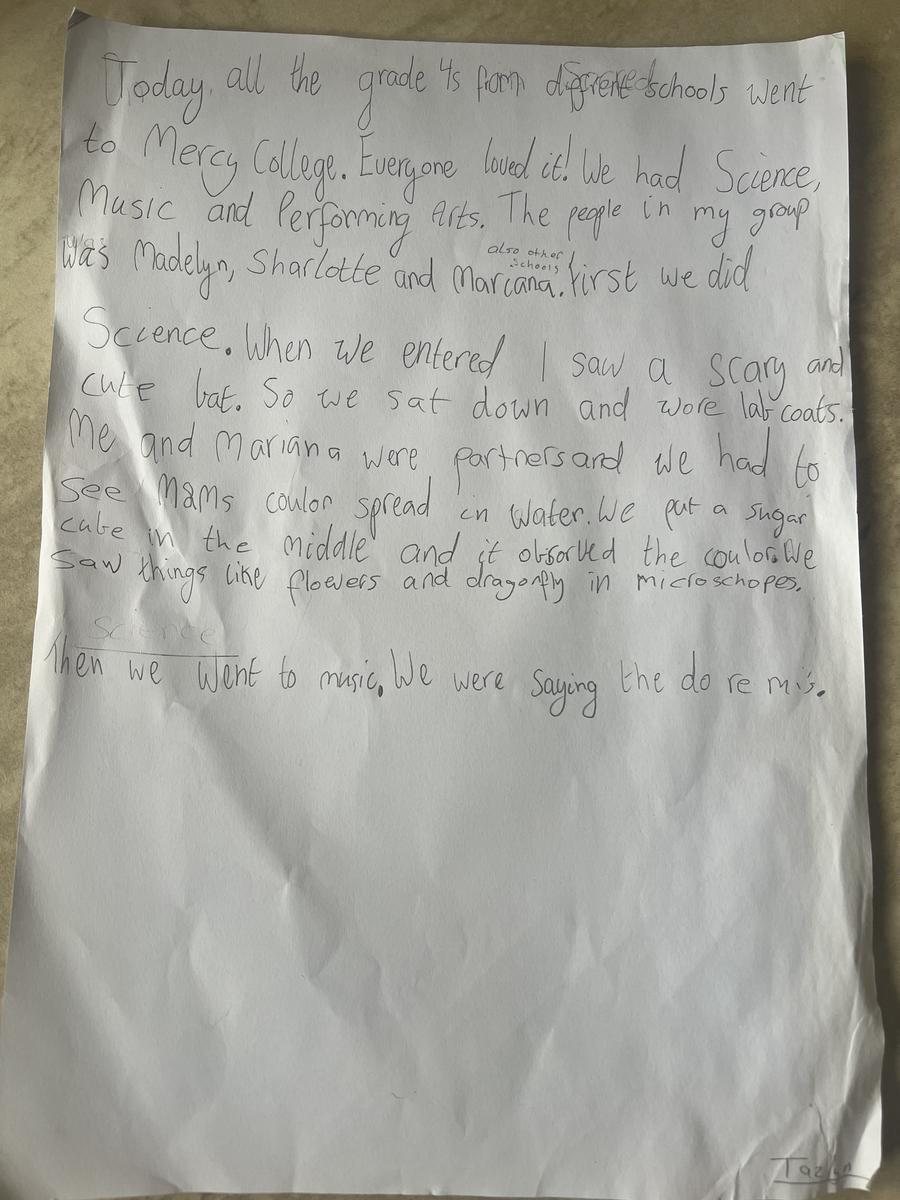 Today, all the grade 4s from different schools went
to Mercy College. Everyone loved it! We had Science,
Music and Performing Arts. The people in my group
was Madelyn, Sharlotte and Mariana. first we did
also other
schools
Science. When we entered I saw a scary and
cute bat. So we sat down and wore lab coats.
Me and Mariana were partners and we had to
see M&Ms coulor spread in water. We put a sugar
cube in the middle and it obsorbed the coulor. We
saw things like flowers and dragonfly in microschopes.
Science
Then we went to music. We were saying the do re mi's.